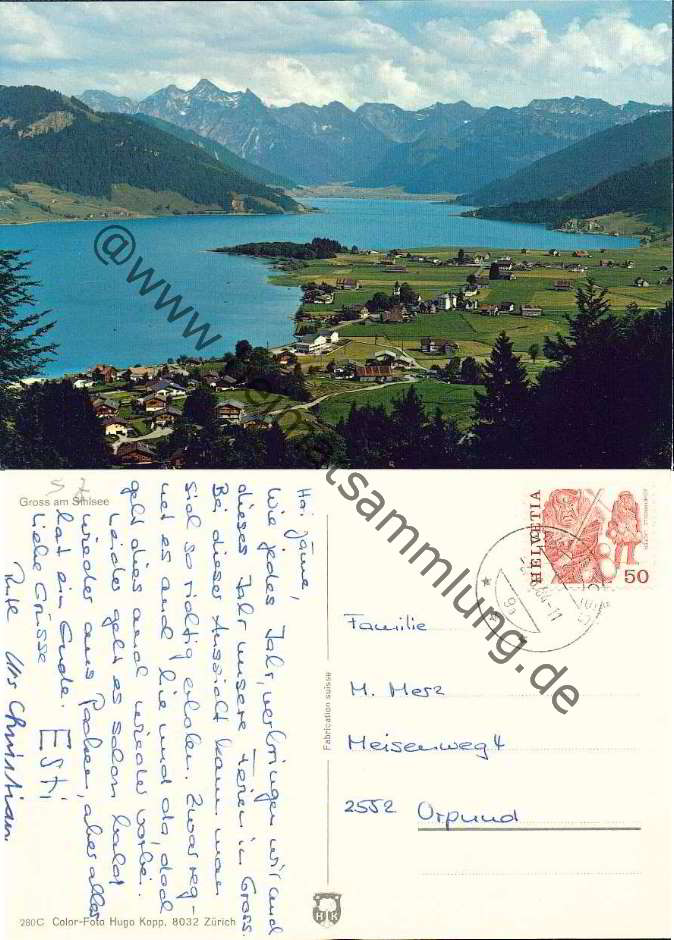 @www.ansichtskartensammlung.de
Gross am Sihlsee
Hoi zäme,
Wie jedes Jahr, verbringen wir auch
dieses Jahr unsere Ferien in Gross.
Bei dieser Aussicht kann man
sich so richtig erholen. Zwar reg-
net es auch hie und da, doch
geht dies auch wieder vorbei.
Leider geht es schon bald
wieder ans Packen, aber alles
hat ein Ende.
Liebe Grüsse
Esti
Ruth Urs Christian
Fabrication suisse
HELVETIA
50
Familie
M. Merz
Meisenweg 4
2552 Orpund
HK
280C Color-Foto Hugo Kopp, 8032 Zürich